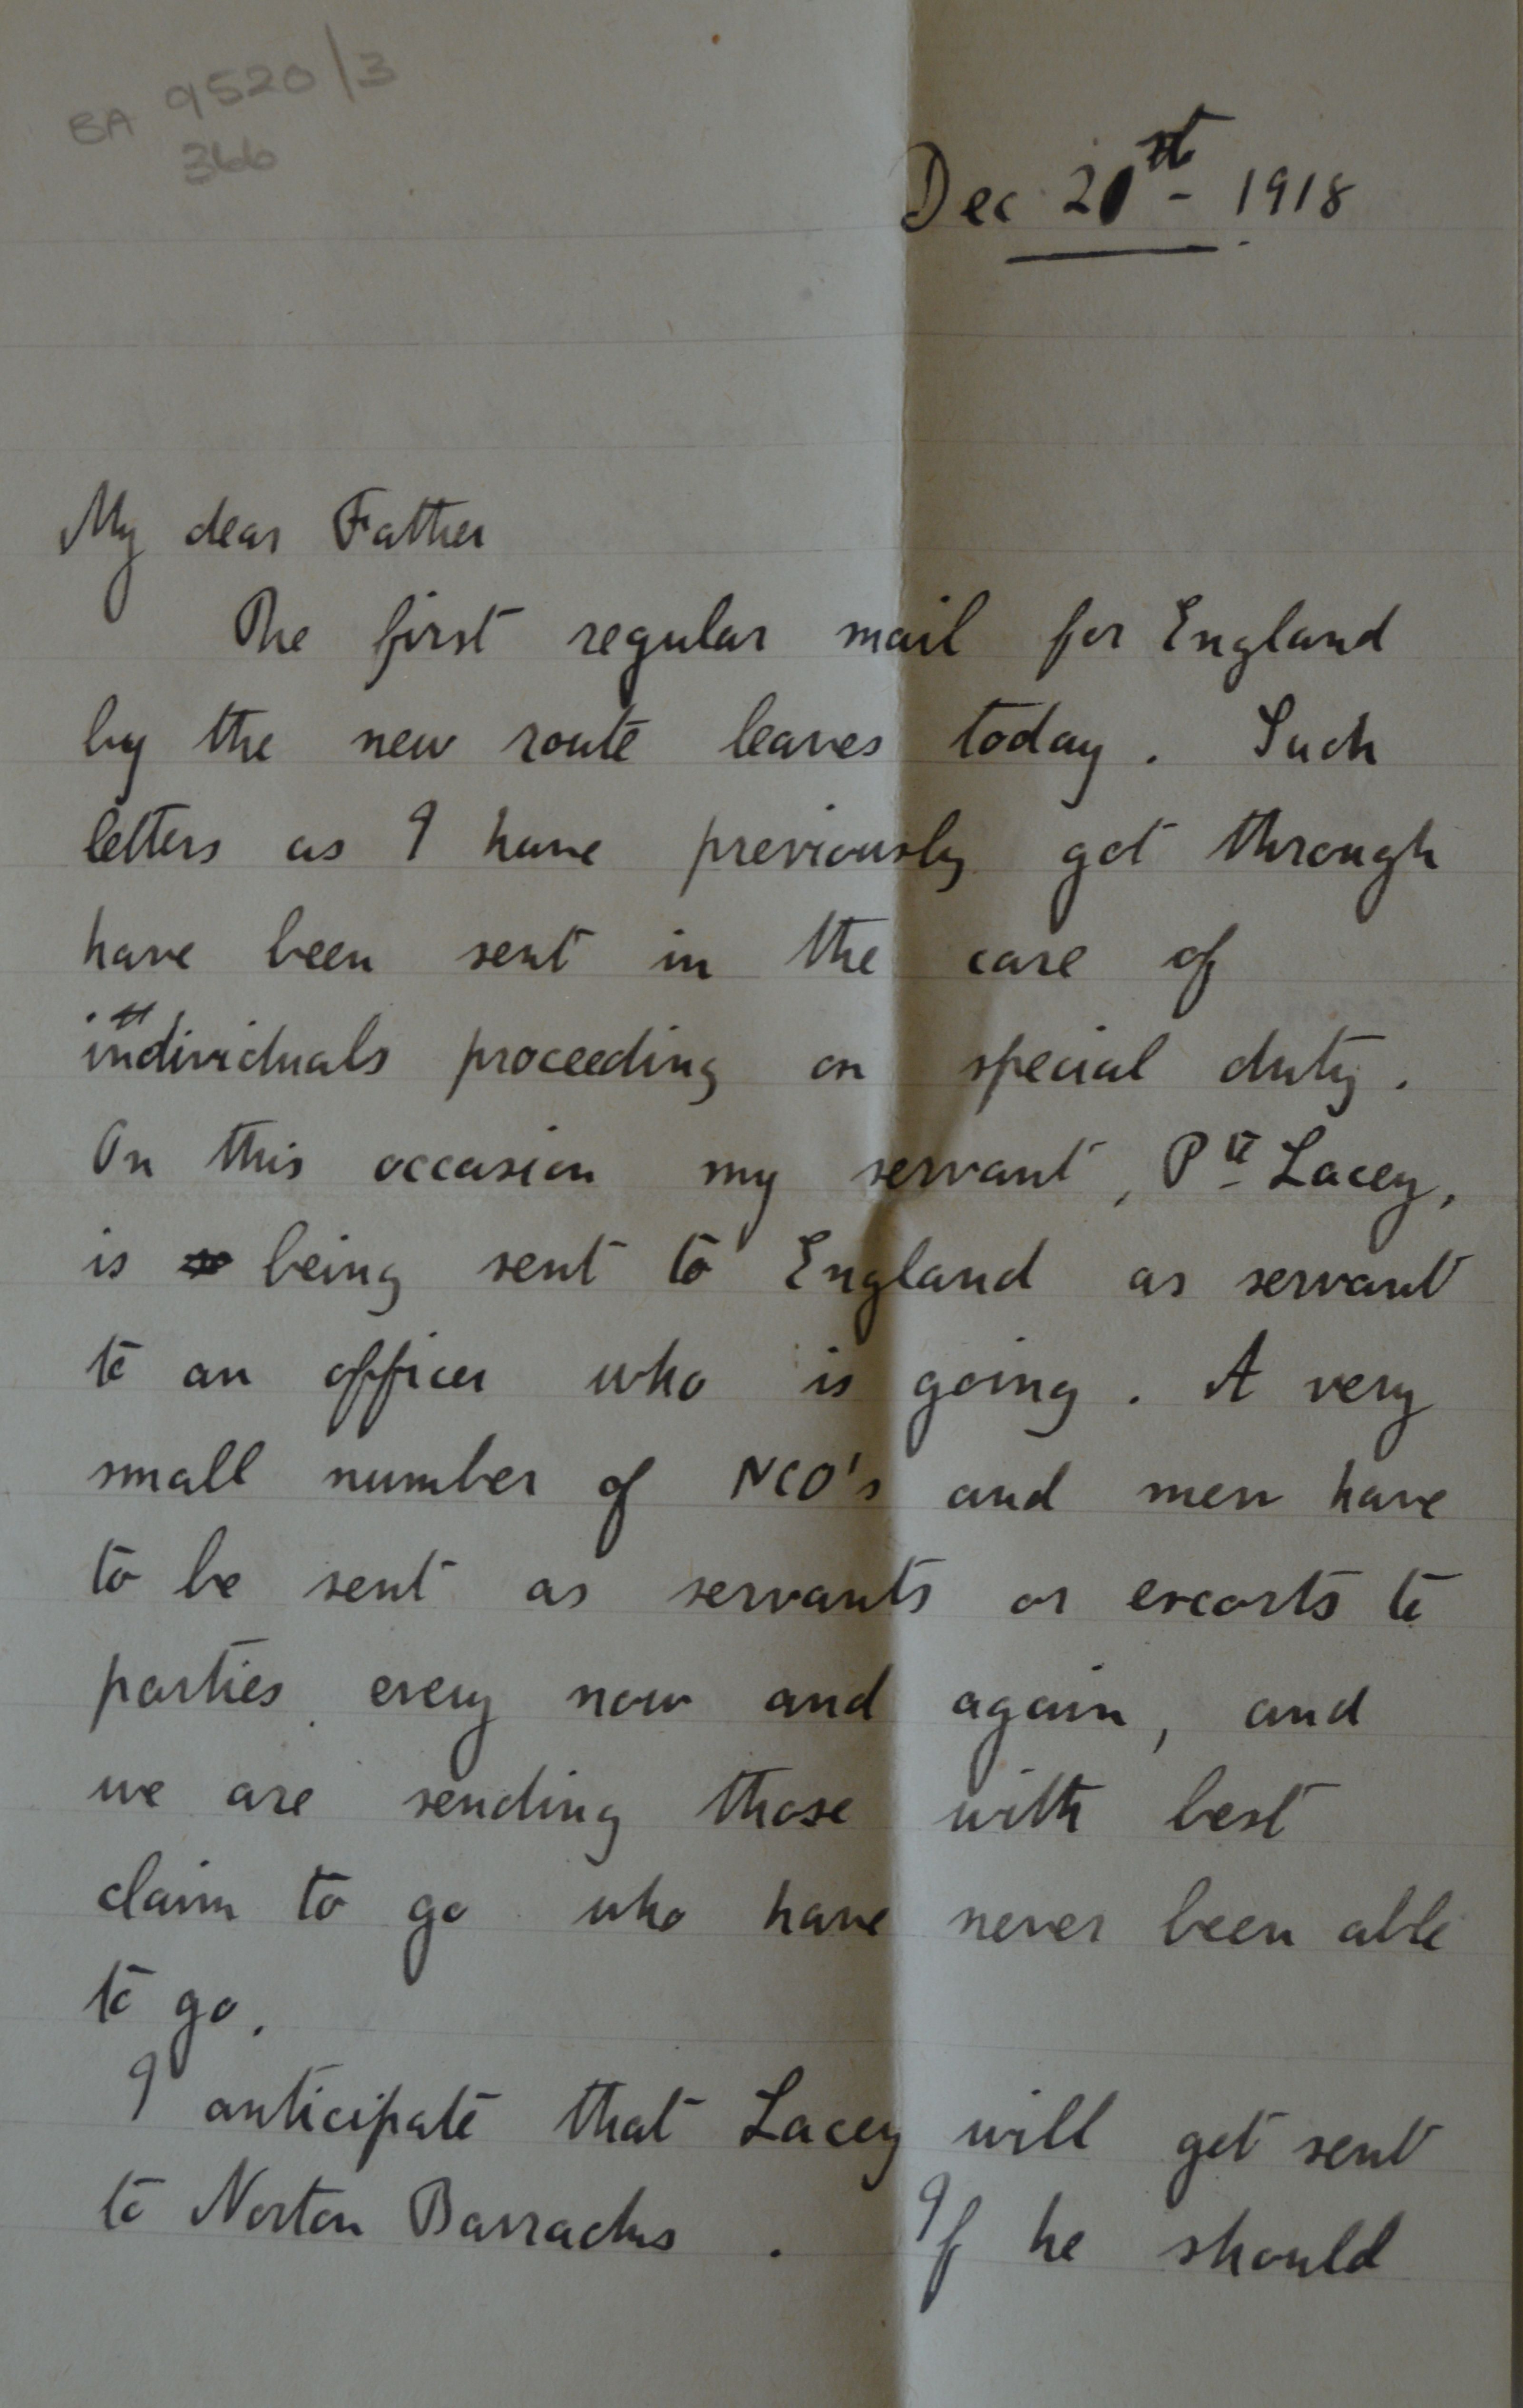 BA 9520/3
366
Dec 21st - 1918
My dear Father
The first regular mail for England
by the new route leaves today. Such
letters as I have previously got through
have been sent in the care of
individuals proceeding on special duty.
On this occasion my servant, Pte Lacey,
is being sent to England as servant
to an officer who is going. A very
small number of NCO's and men have
to be sent as servants or escorts to
parties every now and again, and
we are sending those with best
claim to go who have never been able
to go.
I anticipate that Lacey will get sent
to Norton Barracks. If he should